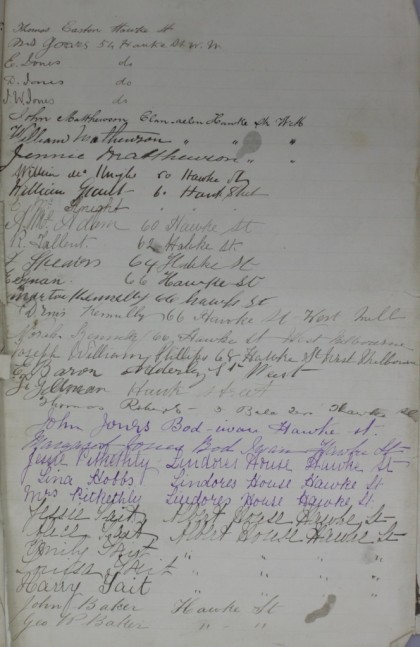 Thomas Easton Hawke St
Mrs Groves 54 Hawke St W. M.
E. Jones do
D. Jones do
J. W. Jones do
John Matthewson Hawke St W. M
William Mathewson " " "
Jennie Matthewson " "
William Mc Hugh 50 Hawke St
William 60 Hawk Street
Knight
Adam 60 Hawke St
R. Tallent 62 Hawke St
Spearos 64 Hawke St
66 Hawke St
Martin Kennelly 66 Hawke St
Denis Kennelly 66 Hawke St West Mell
Hawke St West Melbourne
Joseph William Phillips 68 Hawke St West Melbourne
Baron Adderley St West
Gellman Hawk Street
Thomas Roberts 3 Bala Ter Hawke St
John Jones Bod-iwan Hawke st.
Margaret Jones Bod Iwan Hawke St
Julie Pitkethly Lindores House Hawke St
Lina Hobbs Lindores House Hawke St
Mrs Pitkethly Lindores House Hawke St
Tait Albert House Hawke St
Tait Albert House Hawke St
Emily Tait " " "
Louisa Tait " " "
Harry Tait " " "
John Baker Hawke St
Geo P Baker " "